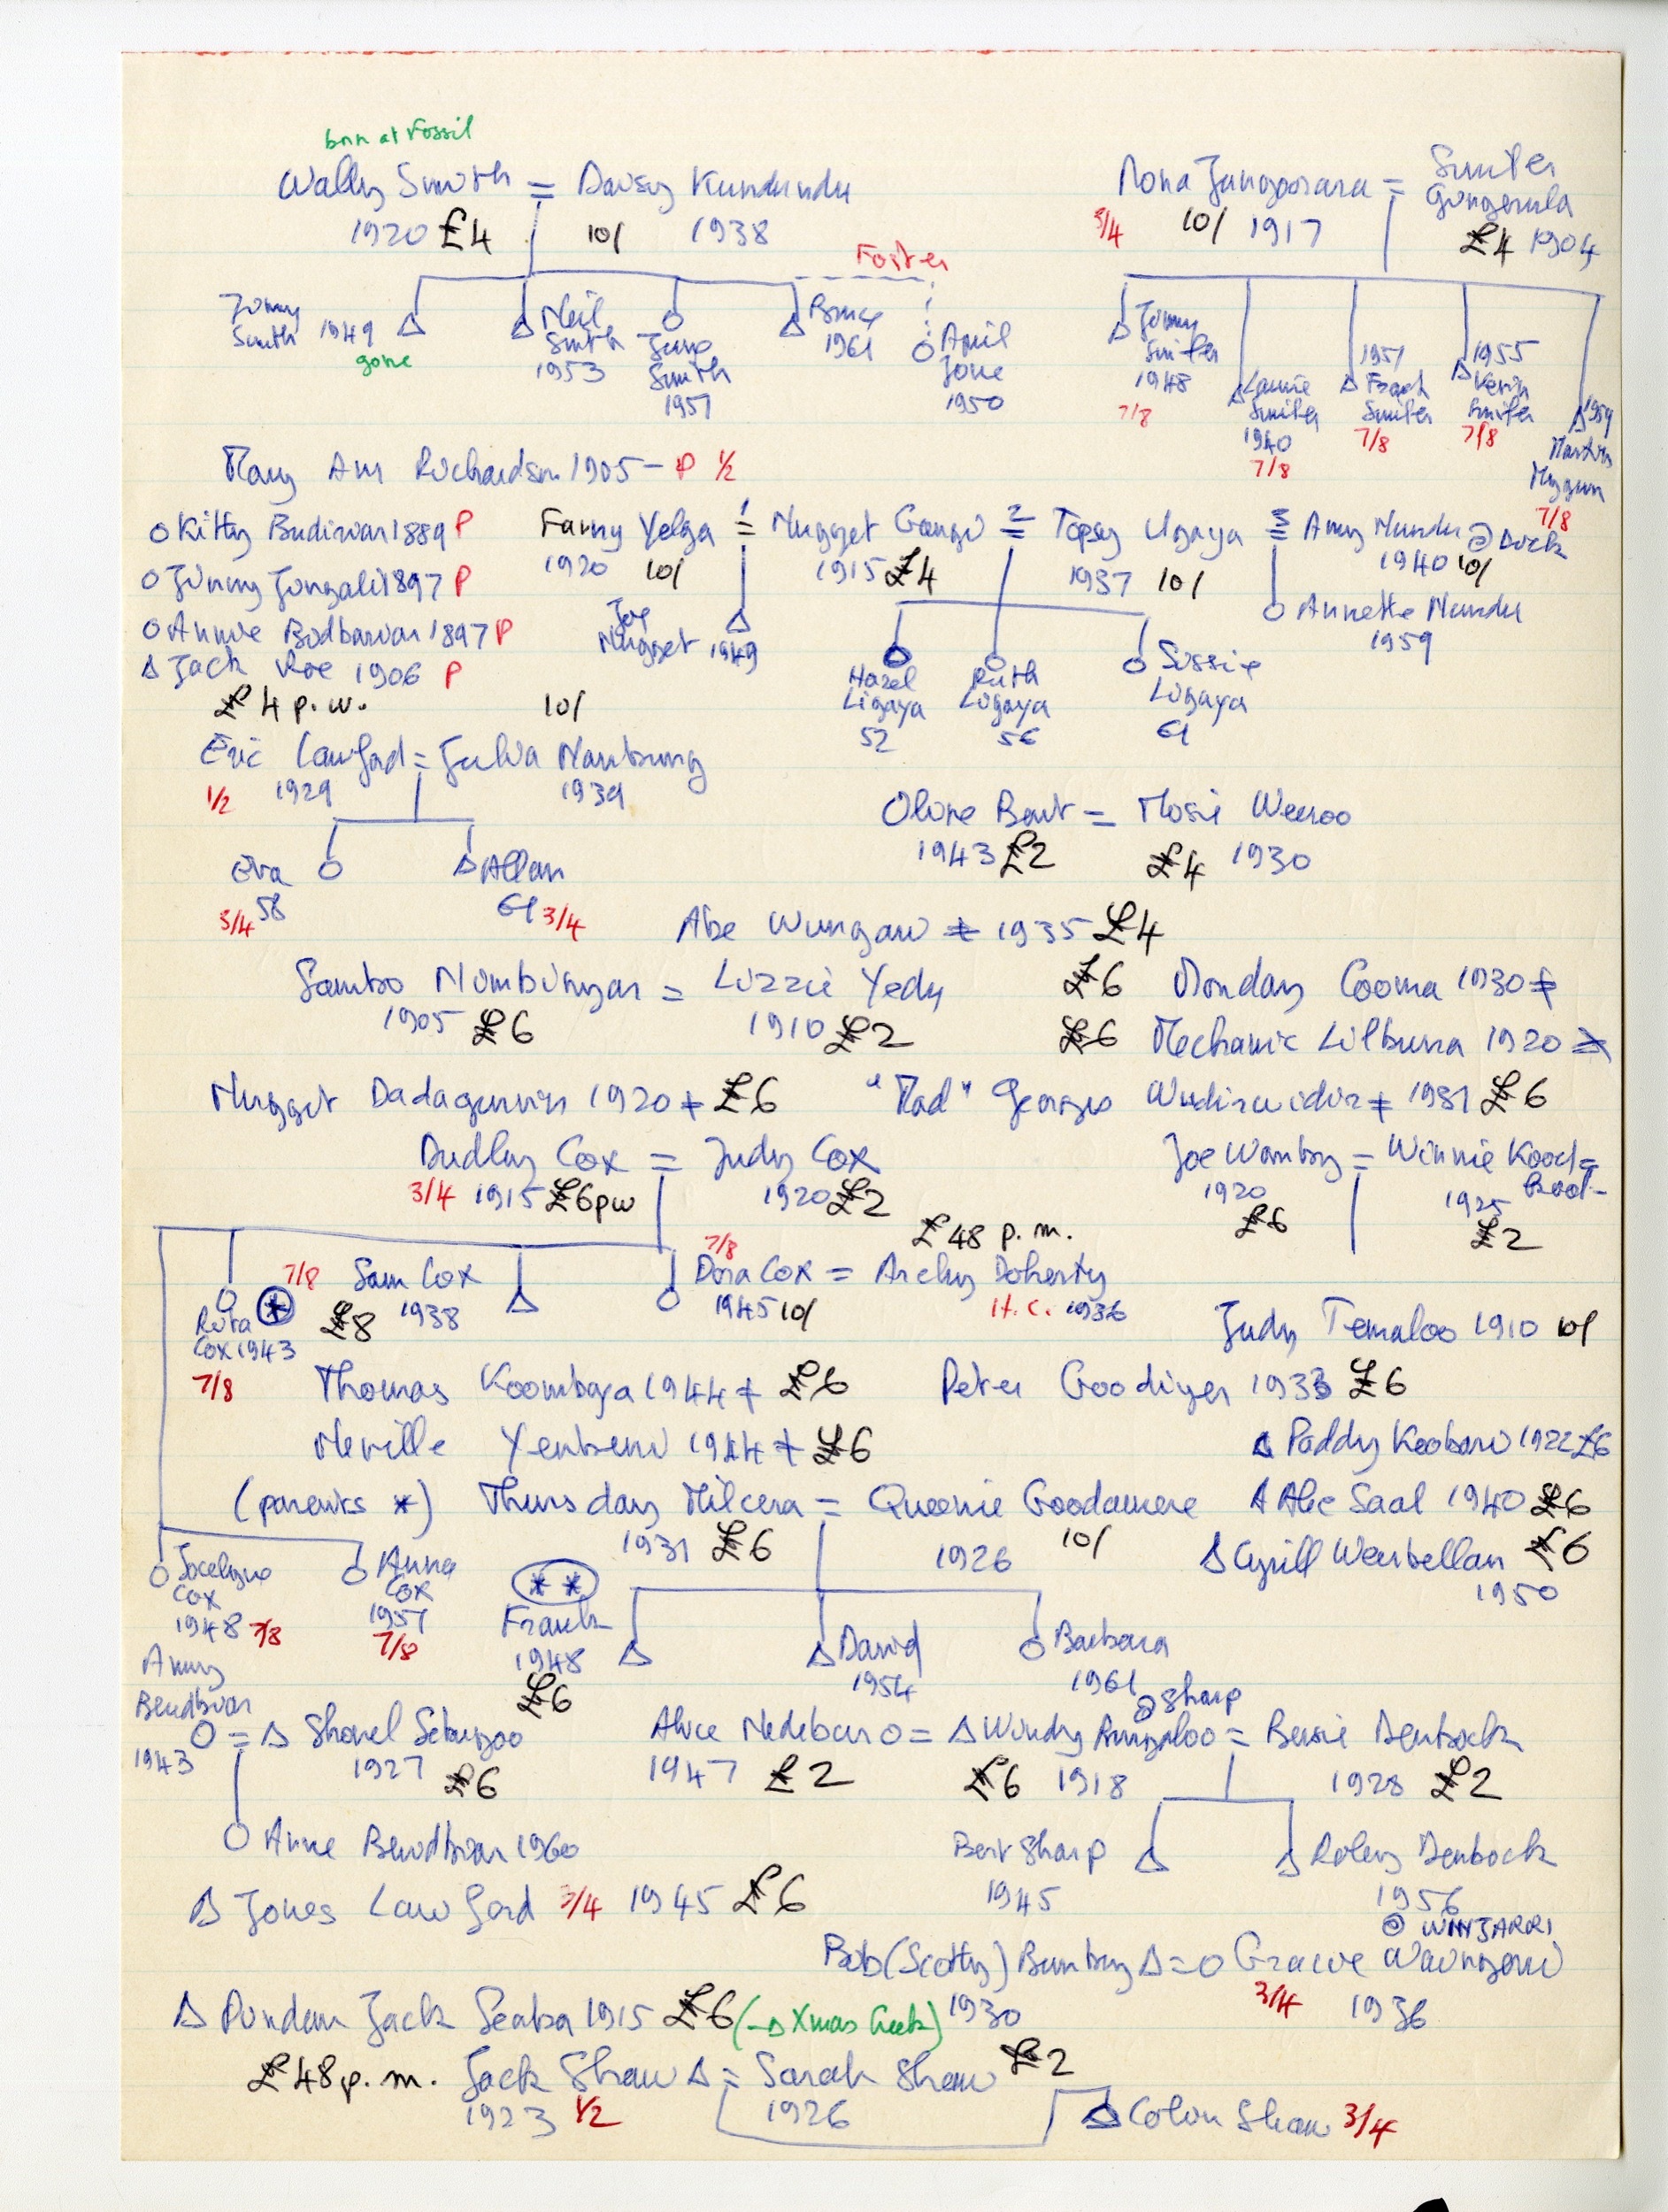 born at Fossil
Wally Smith = Daisy Kundundu
1920 £4 10/ 1938
Nona Jungoorara = Smiler
3/4 10/ 1917 £4 1904
Foster
Jimmy Smith 1949 gone
Neil Smith 1953
June Smith 1957
Bruce 1961
April Jone 1950
Jimmy Smiler 1948 7/8
Laurie Smiler 1940 7/8
1951 Frank Smiler 7/8
1955 Kevin Smiler 7/8
1959 Martin 7/8
Mary Ann Richardson 1905 – P 1/2
O Kitty Budiwan 1889 P
O Jinny Jungali 1897 P
O Annie Bodbarian 1897 P
Δ Jack Roe 1906 P
Fanny Yelga 1= Nugget Gangi 2= Topsy Ugaya 3= Amy Nundu @ Duck
1920 10/ 1915 £4 1937 10/ 1940 10/
Joe Nugget 1949
Annette Nundu 1959
Hazel Ligaya 52
Ruth Ligaya 56
Sissie Ligaya 61
£4 p.w. 10/
Eric Lawford = Julia Nanbung
1/2 1929 1939
Eva 58 3/4
Allan 61 3/4
Olive Bant = Mosie Weeroo
1943 £2 £4 1930
Abe Wungaw ≠ 1935 £4
Sambo Numbunyar = Lizzie Yedy
1905 £6 1910 £2
£6 Monday Cooma 1930 ≠
£6 Mechanic Lilburra 1920 ≠
Nugget Dadagunnin 1920 ≠ £6
"Mad" George Wudinwidin ≠ 1931 £6
Dudley Cox = Judy Cox
3/4 1915 £6 pw 1920 £2
Joe Womby = Winnie Kood-
1920 £6 1925 £2
£48 p.m.
Rita Cox 1943 * 7/8
7/8 Sam Cox 1938 £8
7/8 Dora Cox = Archy Doherty
1945 10/ H.C. 1936
Judy Temaloo 1910 10/
Thomas Koombaya 1944 ≠ £6
Peter Goodiyer 1933 £6
Neville Yenbeni 1944 ≠ £6
Δ Paddy Keobani 1922 £6
(parents *) Thursday Milcera = Queenie Goodamere
1931 £6 1926 10/
Δ Alec Saal 1940 £6
Δ Cyrill Weerbellan £6
1950
Jocelyne Cox 1948 7/8
Anna Cox 1957 7/8
* *
Frank 1948 £6
David 1954
Barbara 1961
Amy Bendbian 1943
O = Δ Shovel Seburgoo
1927 £6
O Anne Bendbian 1960
Alice Nedebur O = Δ Windy Bungaloo @ Sharp = Bessie Denbock
1947 £2 £6 1918 1928 £2
Bert Sharp 1945
Roley Denbock 1956
Δ Jones Lawford 3/4 1945 £6
@ WINJARRI
Bob (Scotty) Bumby Δ = O Gracie
1930 3/4 1936
Δ Dundan Jack Seaba 1915 £6 (→ Xmas Creek)
£48 p.m. Jack Shaw Δ = Sarah Shaw £2
1923 1/2 1926
Δ Colin Shaw 3/4